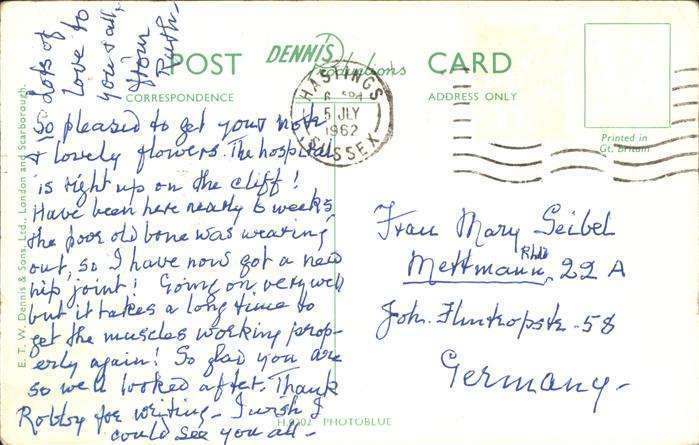 POST CARD
DENNIS
Productions
CORRESPONDENCE
ADDRESS ONLY
Printed in
Gt. Britain
HASTINGS
5 JLY
1962
SUSSEX
E. T. W. Dennis & Sons, Ltd., London and Scarborough.
So pleased to get your note
& lovely flowers. The hospital
is right up on the cliff!
Have been here nearly 6 weeks,
the poor old bone was wearing
out, so I have now got a new
hip joint! Going on very well
but it takes a long time to
get the muscles working prop-
erly again! So glad you are
so well looked after. Thank
Robby for writing - I wish I
could see you all -
Lots of
love to
you & all,
from
Ruth.
Frau Mary Seibel
Mettmann, Rhld 22 A
Joh. Flintropstr. 58
Germany -
PHOTOBLUE